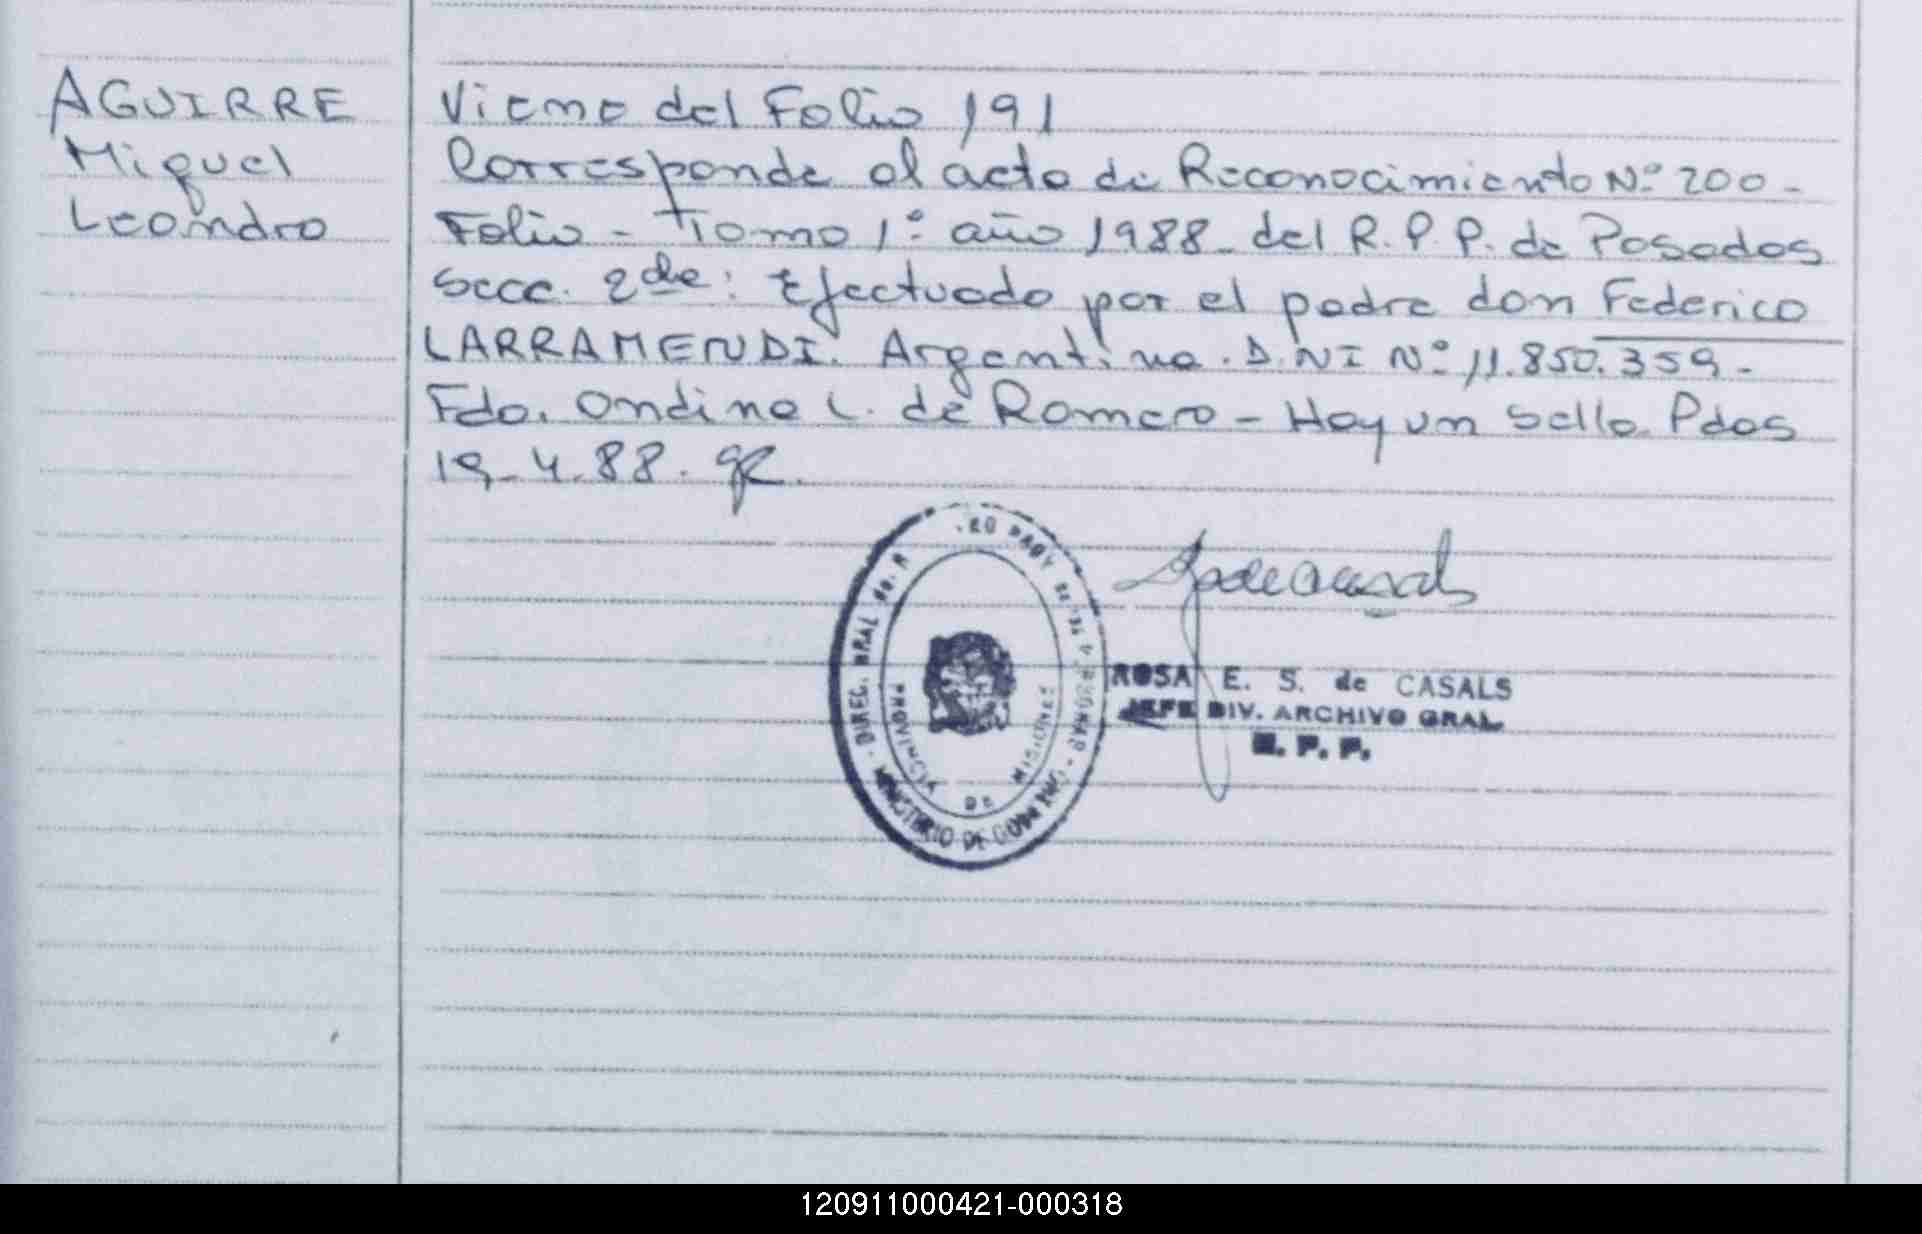 AGUIRRE
Miguel
Leandro
Viene del Folio 191
Corresponde al acta de Reconocimiento Nº 200 -
Folio - Tomo 1º año 1988 - del R. P. P. de Posadas
Secc. 2da: Efectuado por el padre don Federico
LARRAMENDI. Argentino. D.NI Nº 11.850.359 -
Fdo. Ondina L. de Romero - Hay un Sello Pdas
19-4.88.
DIREC. GRAL de.
MINISTERIO DE GOBIERNO
PROVINCIA DE MISIONES
ROSA E. S. de CASALS
JEFE DIV. ARCHIVO GRAL
R. P. P.
120911000421-000318